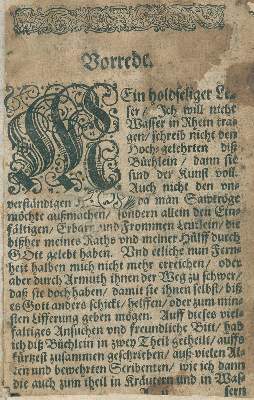 Vorrede.
MEin holdseliger Le-
ser / Ich will nicht
Wasser in Rhein tra-
gen / schreib nicht den
Hochgelehrten diß
Büchlein / dann sie
sind der Kunst voll.
Auch nicht den
verständigen da man Sawtröge
möchte außmachen / sondern allein den Ein-
fältigen / Erbarn und Frommen Leutlein / die
bißher meines Raths und meiner Hülff durch
GOtt gelebt haben. Und etliche nun Fern-
heit halben mich nicht mehr erreichen / oder
aber durch Armuth ihnen der Weg zu schwer /
daß sie doch haben / damit sie ihnen selbst / biß
es Gott anders schickt / helffen / oder zum min-
sten Lifferung geben mögen. Auff dieses viel-
faltiges Ansuchen und freundliche Bitt / hab
ich diß Büchlein in zwey Theil getheilt / auffs
kürtzest zusammen geschrieben / auß vielen Al-
ten und bewehrten Scribenten / wie ich dann
die auch zum theil in Kräutern und in Was-
sern